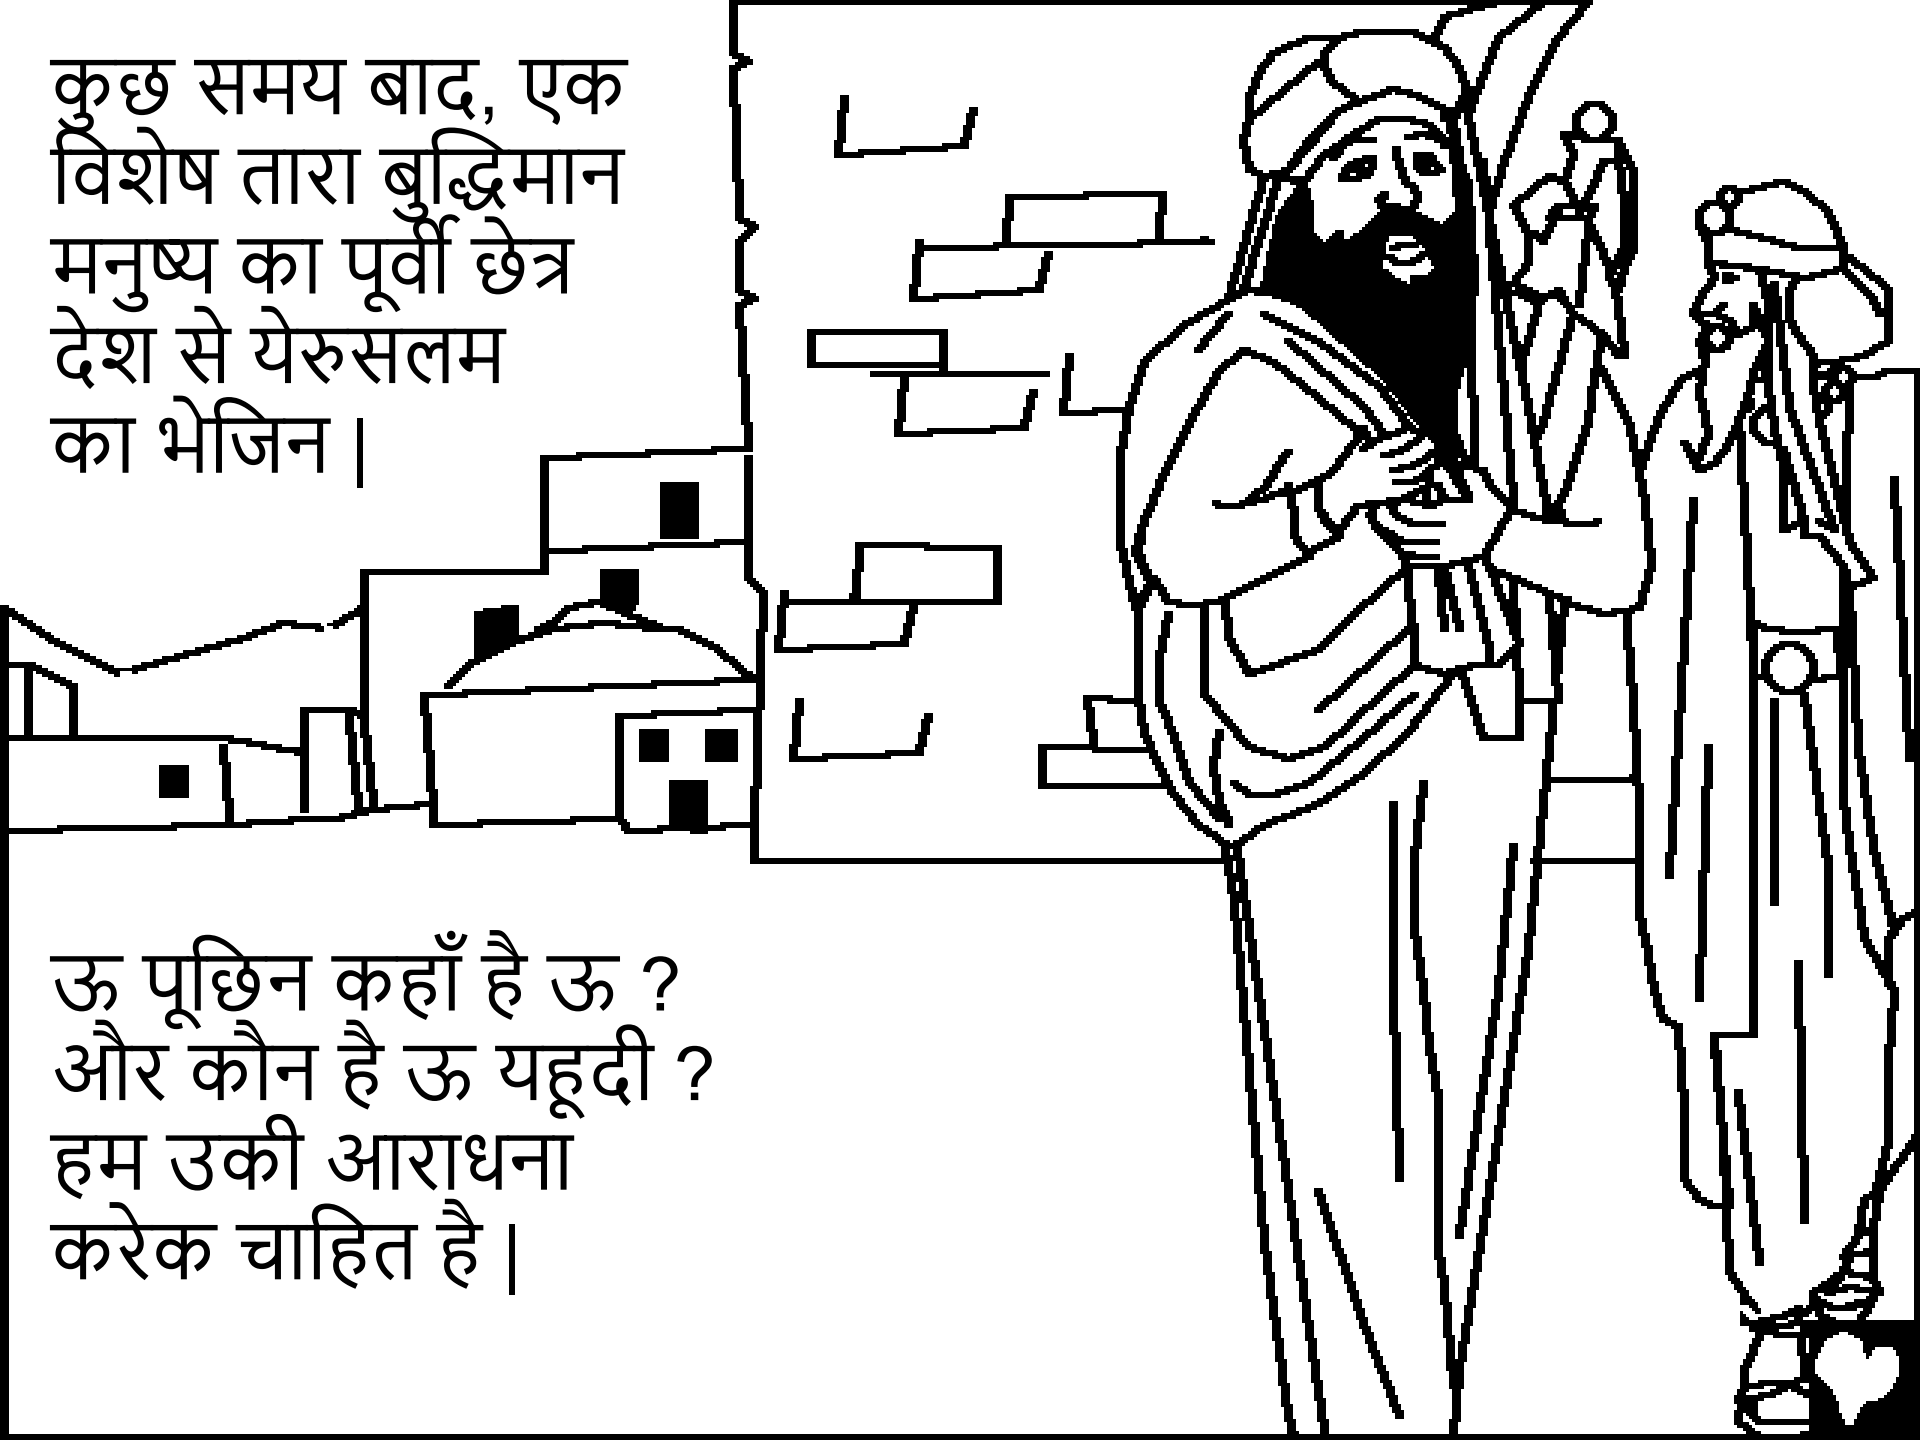 कुछ समय बाद, एक
विशेष तारा बुद्धिमान
मनुष्य का पूर्वी छेत्र
देश से येरुसलम
का भेजिन |
ऊ पूछिन कहाँ है ऊ ?
और कौन है ऊ यहूदी ?
हम उकी आराधना
करेक चाहित है |